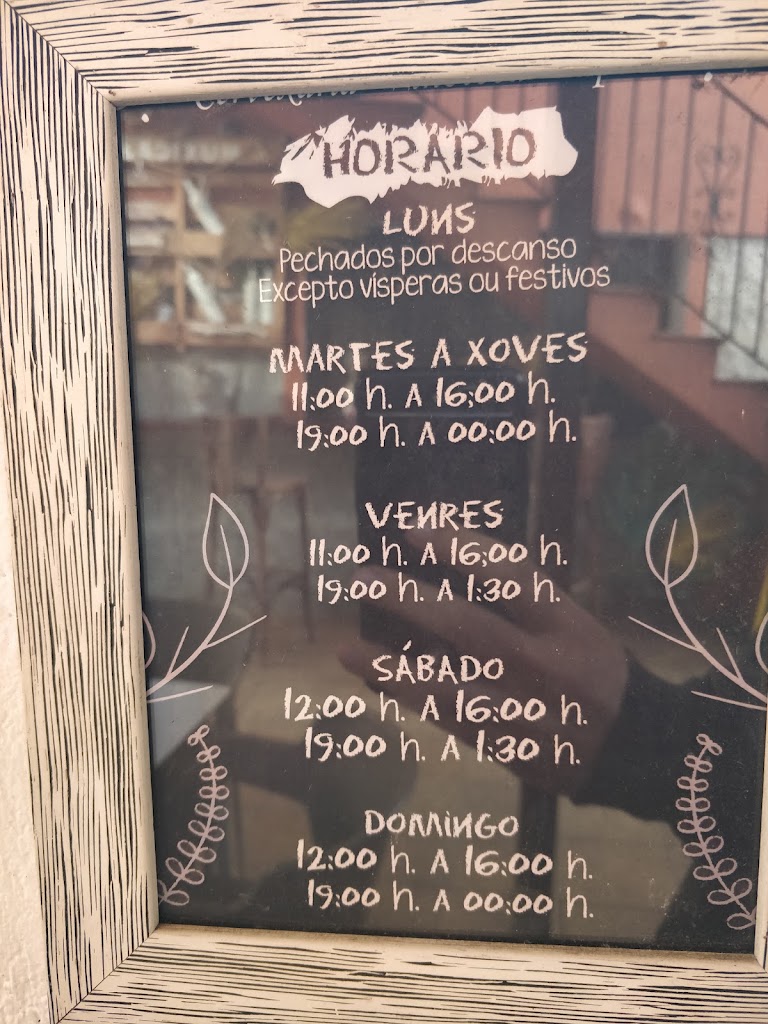 HORARIO
LUNS
Pechados por descanso
Excepto vísperas ou festivos
MARTES A XOVES
11:00 h. A 16:00 h.
19:00 h. A 00:00 h.
VENRES
11:00 h. A 16:00 h.
19:00 h. A 1:30 h.
SÁBADO
12:00 h. A 16:00 h.
19:00 h. A 1:30 h.
DOMINGO
12:00 h. A 16:00 h.
19:00 h. A 00:00 h.